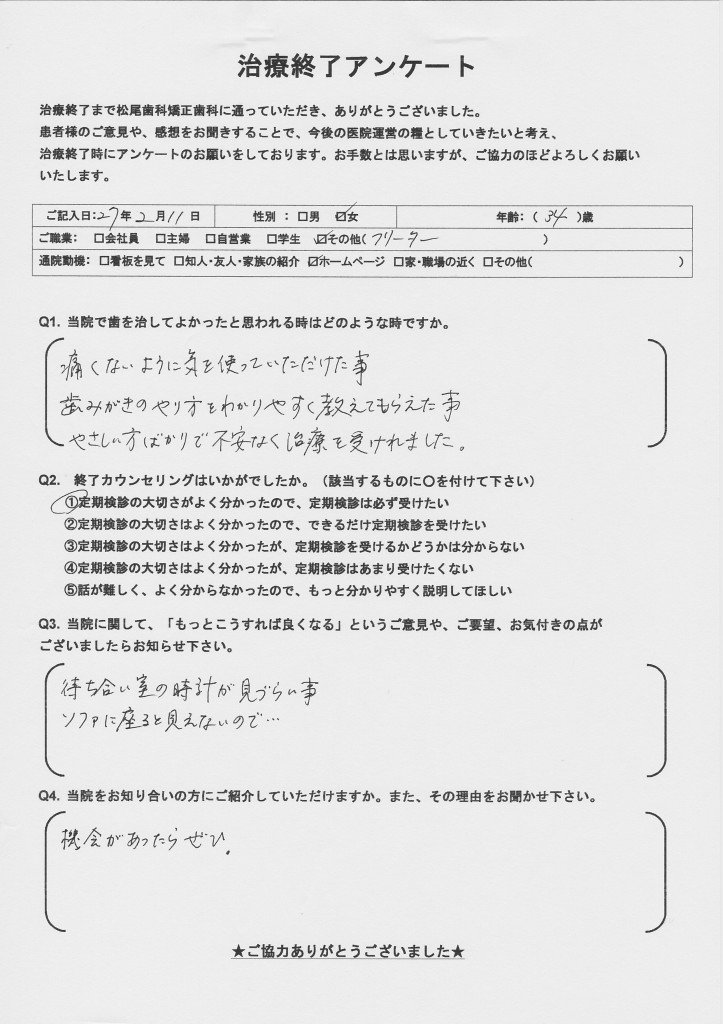 治療終了アンケート
治療終了まで松尾歯科矯正歯科に通っていただき、ありがとうございました。
患者様のご意見や、感想をお聞きすることで、今後の医院運営の糧としていきたいと考え、
治療終了時にアンケートのお願いをしております。お手数とは思いますが、ご協力のほどよろしくお願い
いたします。
ご記入日:27年2月11日 性別 : □男 ☑女 年齢:( 34 )歳
ご職業: □会社員 □主婦 □自営業 □学生 ☑その他( フリーター )
通院動機: □看板を見て □知人・友人・家族の紹介 ☑ホームページ □家・職場の近く □その他( )
Q1. 当院で歯を治してよかったと思われる時はどのような時ですか。
痛くないように気を使っていただけた事
歯みがきのやり方をわかりやすく教えてもらえた事
やさしい方ばかりで不安なく治療を受けれました。
Q2. 終了カウンセリングはいかがでしたか。(該当するものに〇を付けて下さい)
①定期検診の大切さがよく分かったので、定期検診は必ず受けたい
②定期検診の大切さはよく分かったので、できるだけ定期検診を受けたい
③定期検診の大切さはよく分かったが、定期検診を受けるかどうかは分からない
④定期検診の大切さはよく分かったが、定期検診はあまり受けたくない
⑤話が難しく、よく分からなかったので、もっと分かりやすく説明してほしい
Q3. 当院に関して、「もっとこうすれば良くなる」というご意見や、ご要望、お気付きの点が
ございましたらお知らせ下さい。
待ち合い室の時計が見づらい事
ソファに座ると見えないので…
Q4. 当院をお知り合いの方にご紹介していただけますか。また、その理由をお聞かせ下さい。
機会があったらぜひ。
★ご協力ありがとうございました★